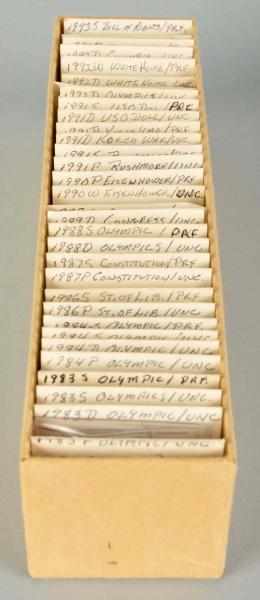 1993 S BILL OF RIGHTS/PRF
1992 D WHITE HOUSE/PRF
1992 D WHITE HOUSE/UNC
1992 D OLYMPICS/UNC
1991 S USO DOLL/PRF
1991 D USO DOLL/UNC
1991 D KOREA WAR/UNC
1991 P RUSHMORE/UNC
1990 P EISENHOWER/PRF
1990 W EISENHOWER/UNC
CONGRESS/UNC
1988 S OLYMPIC/PRF
1988 D OLYMPICS/UNC
1987 S CONSTITUTION/PRF
1987 P CONSTITUTION/UNC
1986 S ST. OF LIB./PRF
1986 P ST. OF LIB./UNC
1984 S OLYMPIC/PRF
1984 S OLYMPIC/UNC
1984 D OLYMPIC/UNC
1984 P OLYMPIC/UNC
1983 S OLYMPIC/PRF
1983 S OLYMPICS/UNC
1983 D OLYMPIC/UNC
1983 P OLYMPIC/UNC